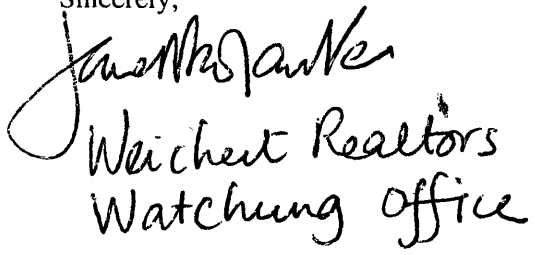 Sincerely,
Weichert Realtors
Watchung Office